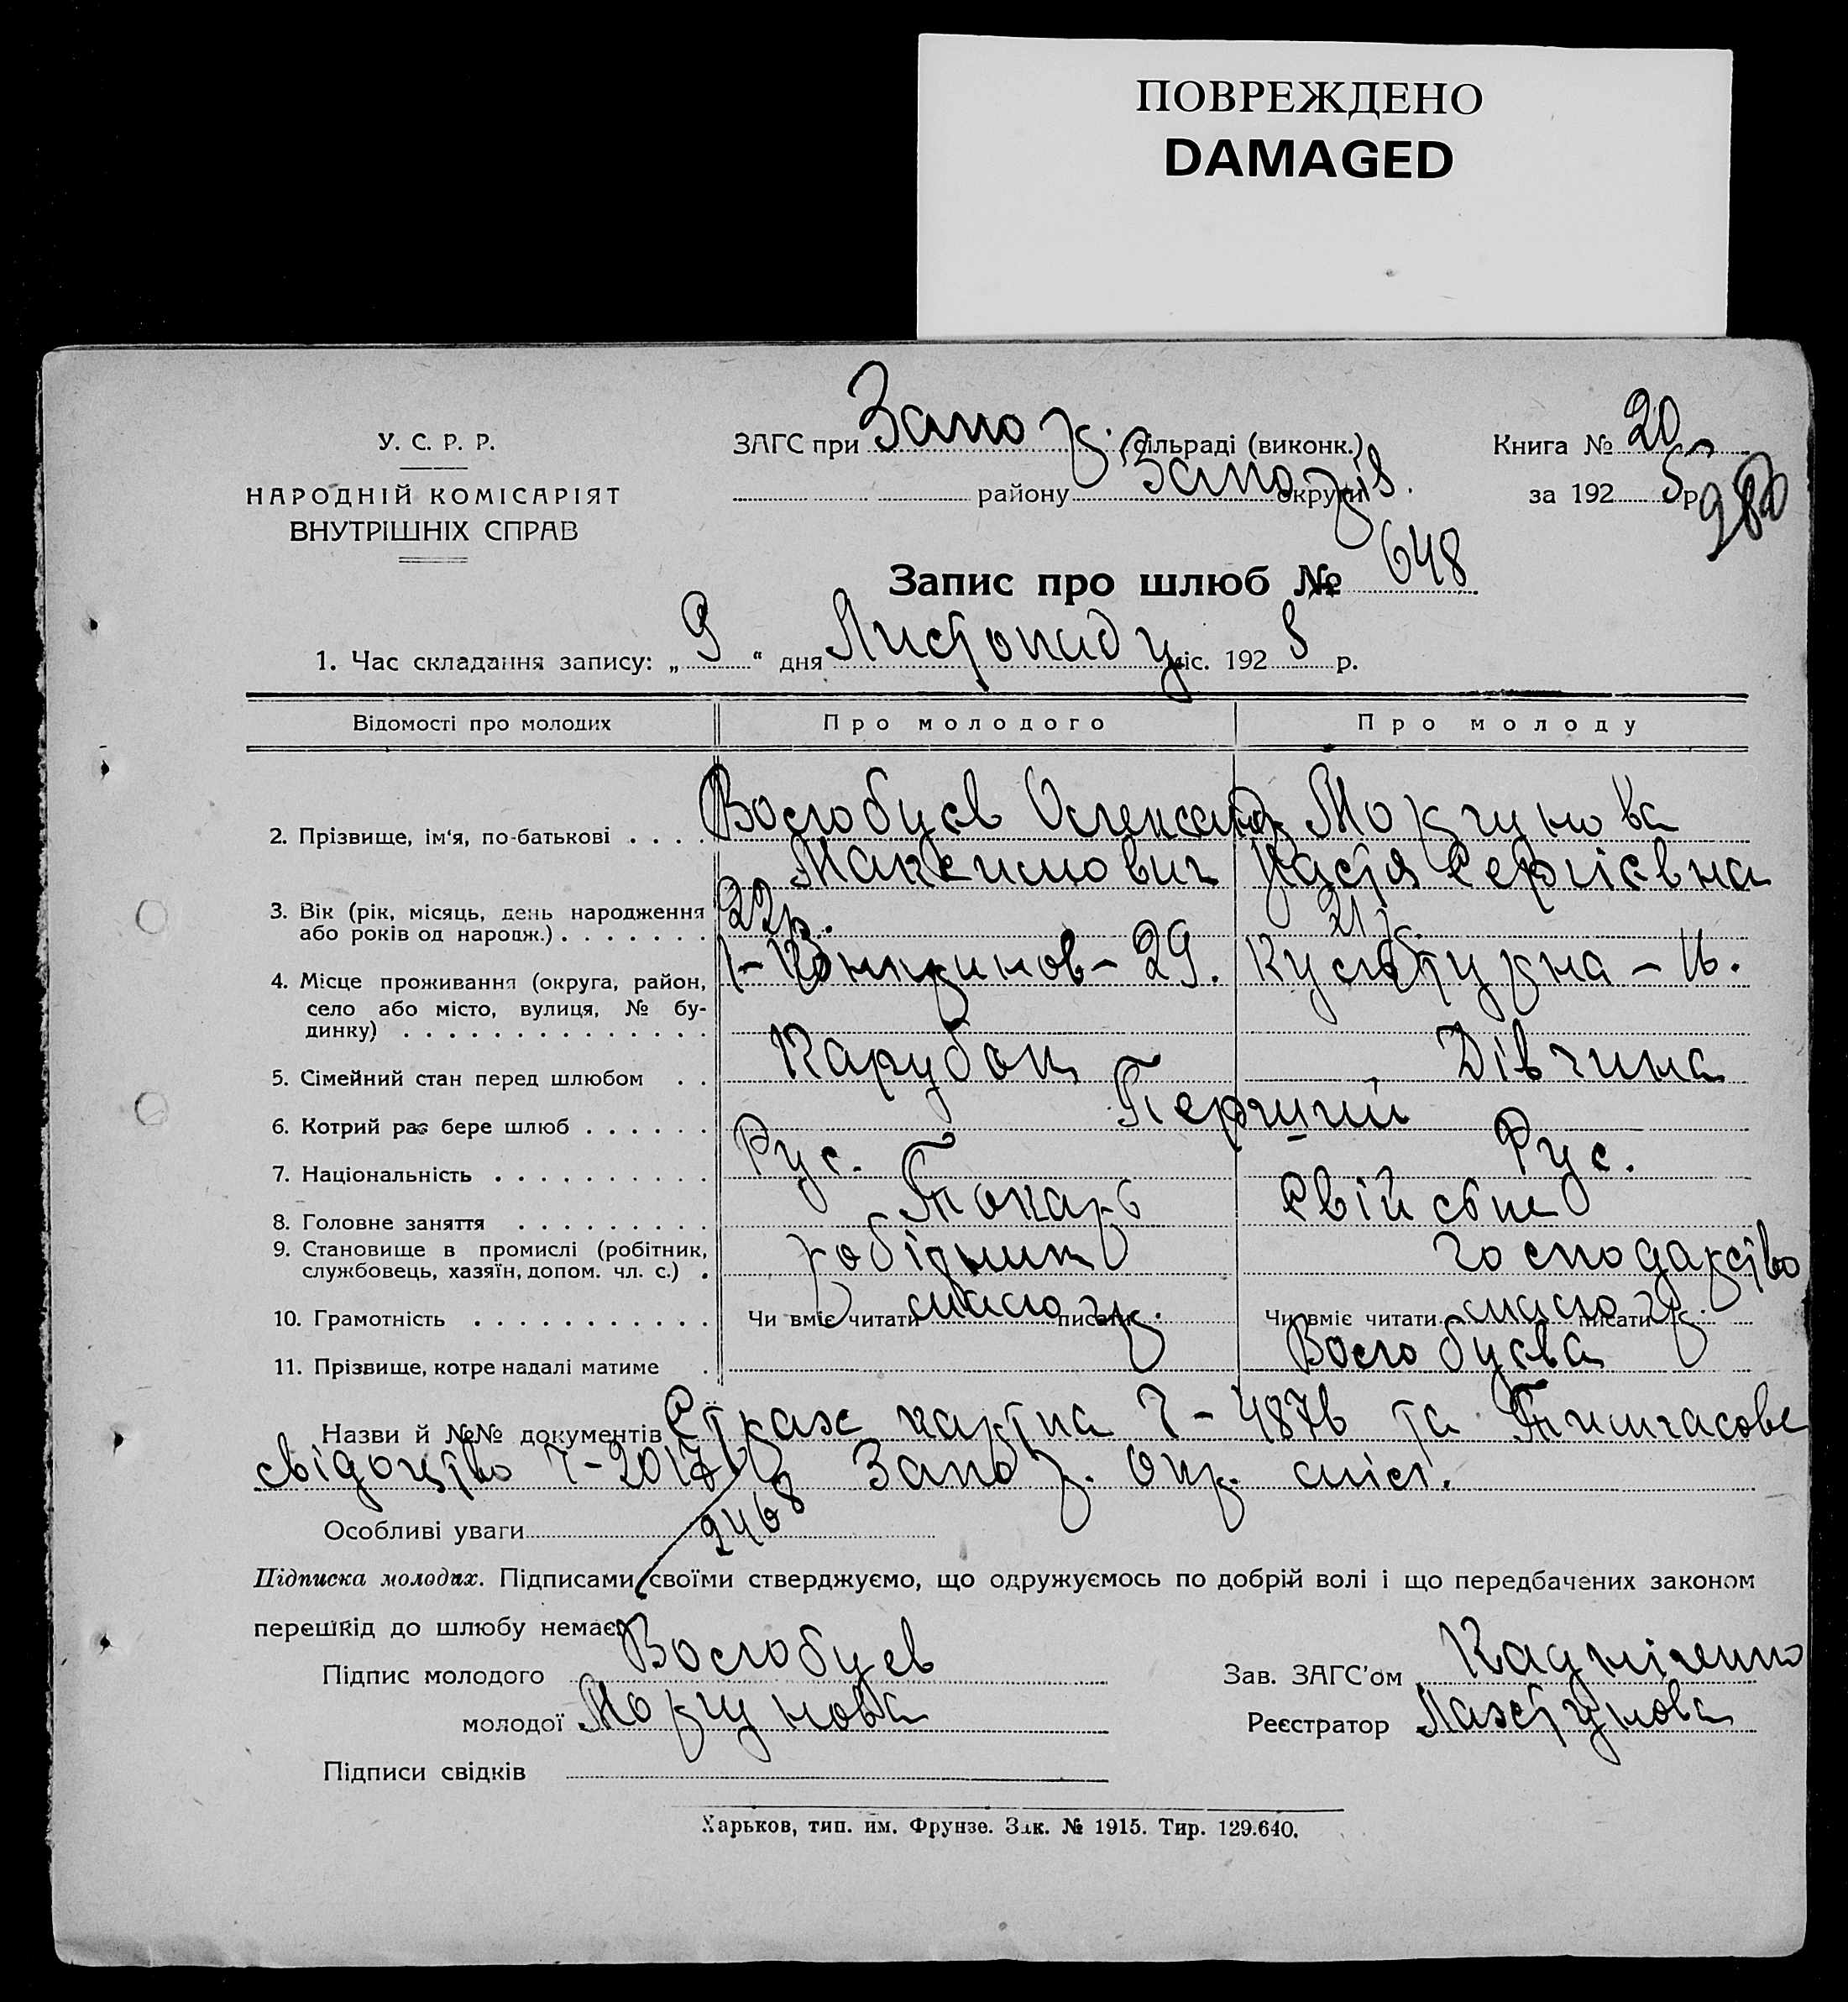 ПОВРЕЖДЕНО
DAMAGED
У. С. Р. Р.
НАРОДНІЙ КОМІСАРІЯТ
ВНУТРІШНІХ СПРАВ
ЗАГС при Запор. сільраді (виконк.)
району Запоріз. округи
Книга № 20
за 192 р.
280
Запис про шлюб № 648
1. Час складання запису: „ 9 “ дня Листопаду міс. 192 р.
Відомості про молодих Про молодого Про молоду
2. Прізвище, ім'я, по-батькові . . . . Волобуєв Олександ. Моргунова
Максимович Настя Сергієвна
3. Вік (рік, місяць, день народження 22р. 21 р.
або років од народж.) . . . . . . .
4. Місце проживання (округа, район, 29. Культурна – 16.
село або місто, вулиця, № бу-
динку) . . . . . . . . . . . . . .
5. Сімейний стан перед шлюбом . . Парубок Дівчина
6. Котрий раз бере шлюб . . . . . . Перший
7. Національність . . . . . . . . . . Рус. Рус.
8. Головне заняття . . . . . . . . . Токарь Свійське
9. Становище в промислі (робітник, робітник господарство
службовець, хазяїн, допом. чл. с.) .
10. Грамотність . . . . . . . . . . . Чи вміє читати малогр. писати Чи вміє читати малогр. писати
11. Прізвище, котре надалі матиме . Волобуєва
Назви й №№ документів Страх картка Г – 4876 та Тимчасове
свідоцтво Запор. Окр. міст.
2468
Особливі уваги
Підписка молодих. Підписами своїми стверджуємо, що одружуємось по добрій волі і що передбачених законом
перешкід до шлюбу немає.
Підпис молодого Волобуев Зав. ЗАГС'ом
молодої Моргунова Реєстратор
Підписи свідків
Харьков, тип. им. Фрунзе. Зак. № 1915. Тир. 129.640.